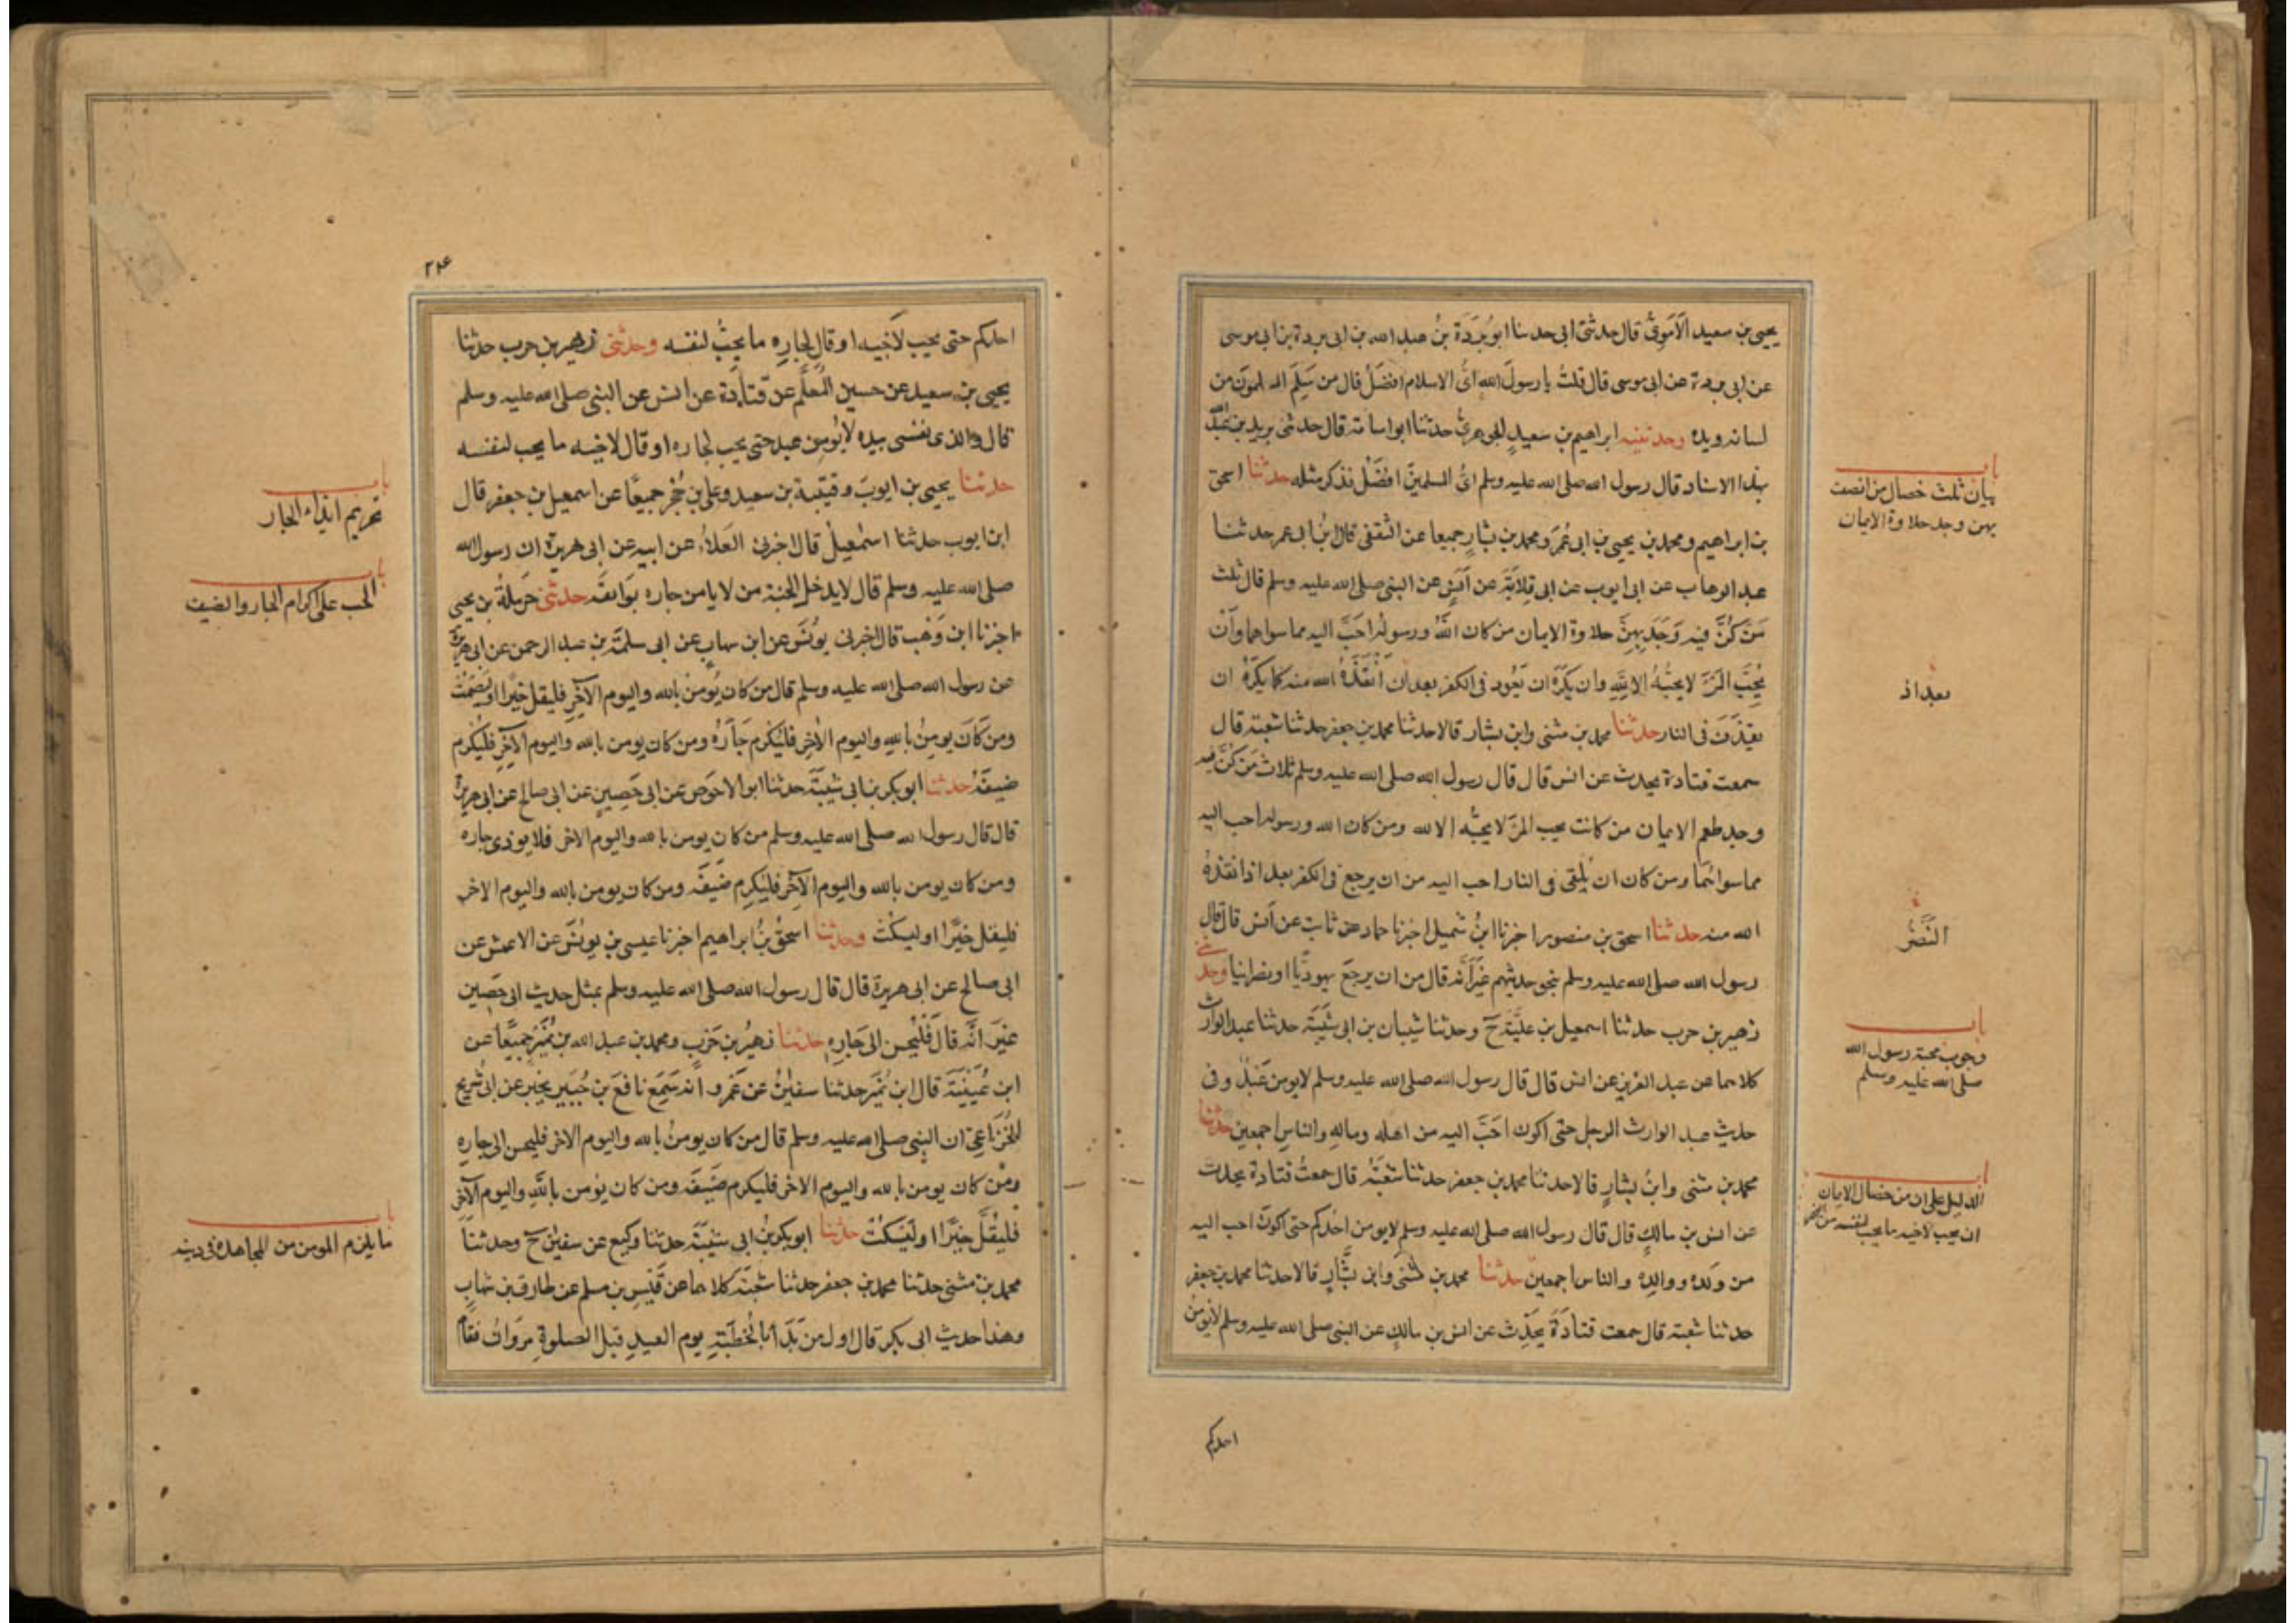 يحيى بن سعيد الاموى قال حدثنى ابى حدثنا ابو بردة بن عبد الله بن ابى بردة بن ابى موسى
عن ابى بردة عن ابى موسى قال قلت يا رسول الله اى الاسلام افضل قال من سلم المسلمون من
لسانه ويده وحدثنيه ابراهيم بن سعيد الجوهرى حدثنا ابو اسامة قال حدثنى بريد بن عبد الله
بهذا الاسناد قال رسول الله صلى الله عليه وسلم اى المسلمين افضل فذكر مثله حدثنا اسحق
بن ابراهيم ومحمد بن يحيى بن ابى عمر ومحمد بن بشار جميعا عن الثقفى قال ابن ابى عمر حدثنا
عبد الوهاب عن ابى ايوب عن ابى قلابة عن انس عن النبى صلى الله عليه وسلم قال ثلث
من كن فيه وجد بهن حلاوة الايمان من كان الله ورسوله احب اليه مما سواهما وان
يحب المرء لا يحبه الا لله وان يكره ان يعود فى الكفر بعد ان انقذه الله منه كما يكره ان
يقذف فى النار حدثنا محمد بن مثنى وابن بشار قالا حدثنا محمد بن جعفر حدثنا شعبة قال
سمعت قتادة يحدث عن انس قال قال رسول الله صلى الله عليه وسلم ثلاث من كن فيه
وجد طعم الايمان من كانت يحب المرء لا يحبه الا لله ومن كان الله ورسوله احب اليه
مما سواهما ومن كان ان يلقى فى النار احب اليه من ان يرجع فى الكفر بعد اذ انقذه
الله منه حدثنا اسحق بن منصور اخبرنا ابن شميل اخبرنا حماد عن ثابت عن انس قال قال
رسول الله صلى الله عليه وسلم بنحو حديثهم غير انه قال من ان يرجع يهوديا او نصرانيا وحدثنى
زهير بن حرب حدثنا اسمعيل بن علية ح وحدثنا شيبان بن ابى شيبة حدثنا عبد الوارث
كلاهما عن عبد العزيز عن انس قال قال رسول الله صلى الله عليه وسلم لا يومن عبد وفى
حديث عبد الوارث الرجل حتى اكون احب اليه من اهله وماله والناس اجمعين حدثنا
محمد بن مثنى وابن بشار قالا حدثنا محمد بن جعفر حدثنا شعبة قال سمعت قتادة يحدث
عن انس بن مالك قال قال رسول الله صلى الله عليه وسلم لا يومن احدكم حتى اكون احب اليه
من ولده ووالده والناس اجمعين حدثنا محمد بن مثنى وابن بشار قالا حدثنا محمد بن جعفر
حدثنا شعبة قال سمعت قتادة يحدث عن انس بن مالك عن النبى صلى الله عليه وسلم لا يومن
احدكم
باب
بيان ثلث خصال من اتصف
بهن وجد حلاوة الايمان
بعد اذ
النضر
باب
وجوب محبة رسول الله
صلى الله عليه وسلم
باب
الدليل على ان من خصال الايمان
ان يحب لاخيه ما يحب لنفسه من الخير
٢٢۴
احدكم حتى يحب لاخيه او قال لجاره ما يحب لنفسه وحدثنى زهير بن حرب حدثنا
يحيى بن سعيد عن حسين المعلم عن قتادة عن انس عن النبى صلى الله عليه وسلم
قال والذى نفسى بيده لا يومن عبد حتى يحب لجاره او قال لاخيه ما يحب لنفسه
حدثنا يحيى بن ايوب وقتيبة بن سعيد وعلى بن حجر جميعا عن اسمعيل بن جعفر قال
ابن ايوب حدثنا اسمعيل قال اخبرنى العلاء عن ابيه عن ابى هريرة ان رسول الله
صلى الله عليه وسلم قال لا يدخل الجنة من لا يامن جاره بوائقه حدثنى حرملة بن يحيى
اخبرنا ابن وهب قال اخبرنى يونس عن ابن شهاب عن ابى سلمة بن عبد الرحمن عن ابى هريرة
عن رسول الله صلى الله عليه وسلم قال من كان يومن بالله واليوم الآخر فليقل خيرا او ليصمت
ومن كان يومن بالله واليوم الآخر فليكرم جاره ومن كان يومن بالله واليوم الآخر فليكرم
ضيفه حدثنا ابو بكر بن ابى شيبة حدثنا ابو الاحوص عن ابى حصين عن ابى صالح عن ابى هريرة
قال قال رسول الله صلى الله عليه وسلم من كان يومن بالله واليوم الاخر فلا يوذى جاره
ومن كان يومن بالله واليوم الآخر فليكرم ضيفه ومن كان يومن بالله واليوم الاخر
فليقل خيرا او ليسكت وحدثنا اسحق بن ابراهيم اخبرنا عيسى بن يونس عن الاعمش عن
ابى صالح عن ابى هريرة قال قال رسول الله صلى الله عليه وسلم بمثل حديث ابى حصين
غير انه قال فليحسن الى جاره حدثنا زهير بن حرب ومحمد بن عبد الله بن نمير جميعا عن
ابن عيينة قال ابن نمير حدثنا سفين عن عمرو انه سمع نافع بن جبير يخبر عن ابى شريح
الخزاعى ان النبى صلى الله عليه وسلم قال من كان يومن بالله واليوم الاخر فليحسن الى جاره
ومن كان يومن بالله واليوم الاخر فليكرم ضيفه ومن كان يومن بالله واليوم الآخر
فليقل خيرا او ليسكت حدثنا ابو بكر بن ابى شيبة حدثنا وكيع عن سفين ح وحدثنا
محمد بن مثنى حدثنا محمد بن جعفر حدثنا شعبة كلاهما عن قيس بن مسلم عن طارق بن شهاب
وهذا حديث ابى بكر قال اول من بدأ بالخطبة يوم العيد قبل الصلوة مروان فقام
باب
تحريم ايذاء الجار
باب
الحب على اكرام الجار والضيف
باب
ما يلزم المومن من المجاهدة فى دينه